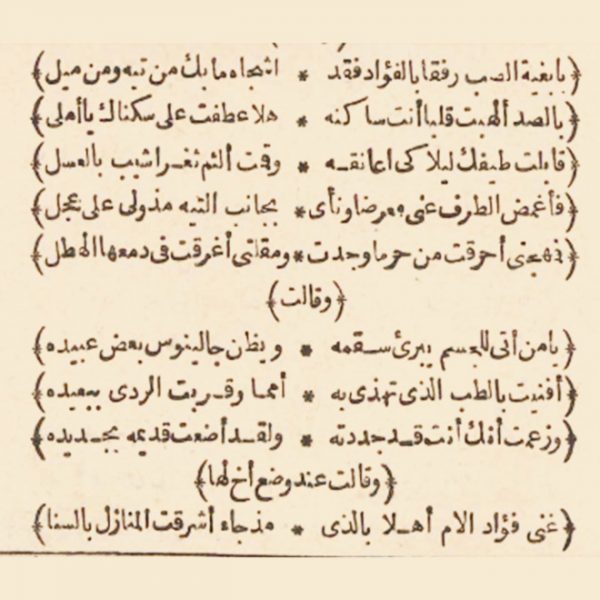 ﴿يابغية الصب رفقا بالفؤاد فقد * اشجاه مابك من تيه ومن ميل﴾
﴿بالصد ألهبت قلبا أنت ساكنه * هلا عطفت على سكناك ياأملى﴾
﴿قابلت طيفك ليلا كى اعانقه * وقت ألثم ثغرا شيب بالعسل﴾
﴿فأغمض الطرف عنى معرضا ونأى * بجانب التيه مذولى على عجل﴾
﴿فمهجتى أحرقت من حرما وجدت * ومقلتى أغرقت فى دمعها الهطل﴾
﴿وقالت﴾
﴿يامن أتى للجسم يبرئ سقمه * ويظن جالينوس بعض عبيده﴾
﴿أفنيت بالطب الذى تهذى به * أمما وقربت الردى ببعيده﴾
﴿وزعمت أنك أنت قد جددته * ولقد أضعت قديمه بجديده﴾
﴿وقالت عند وضع أخ لها﴾
﴿غنى فؤاد الام أهلا بالذى * مذجاء أشرقت المنازل بالسنا﴾